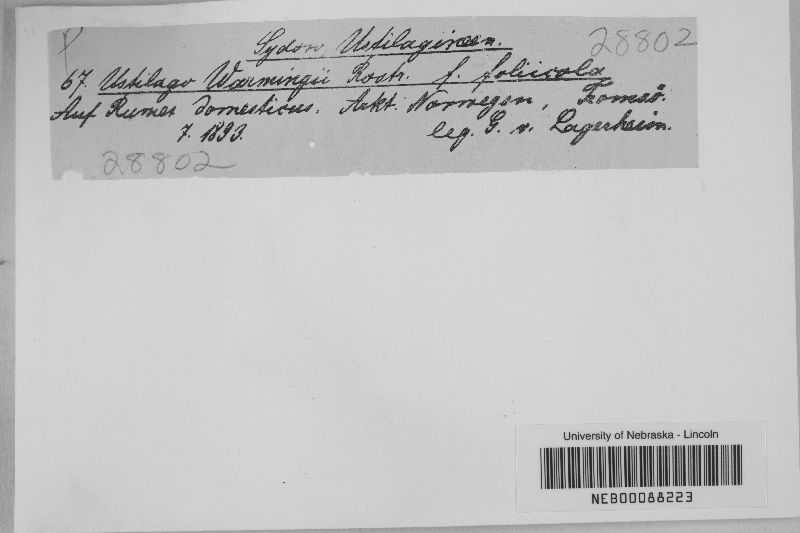 Sydow Ustilagineen.
28802
67. Ustilago Warmingii Rostr. f. foliicola
Auf Rumex domesticus. Arkt. Norwegen, Tromsö.
7. 1893. leg. G. v. Lagerheim.
28802
University of Nebraska - Lincoln
NEB00088223